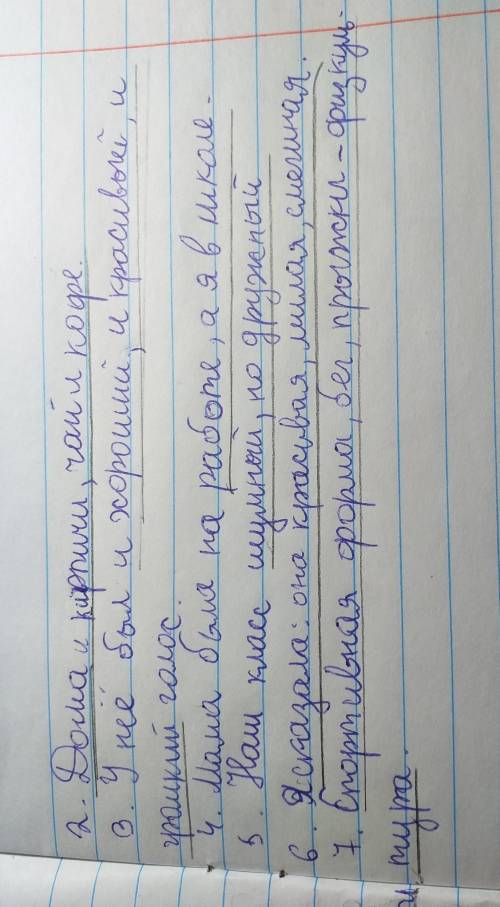 2. Дома и кирпичи, чай и кофе.
3. У неё был и хороший, и красивый, и
громкий голос.
4. Мама была на работе, а я в школе.
5. Наш класс шумный, но дружный
6. Я сказала: она красивая, милая, смешная.
7. Спортивная форма, бег, прыжки - физкуль-
тура.